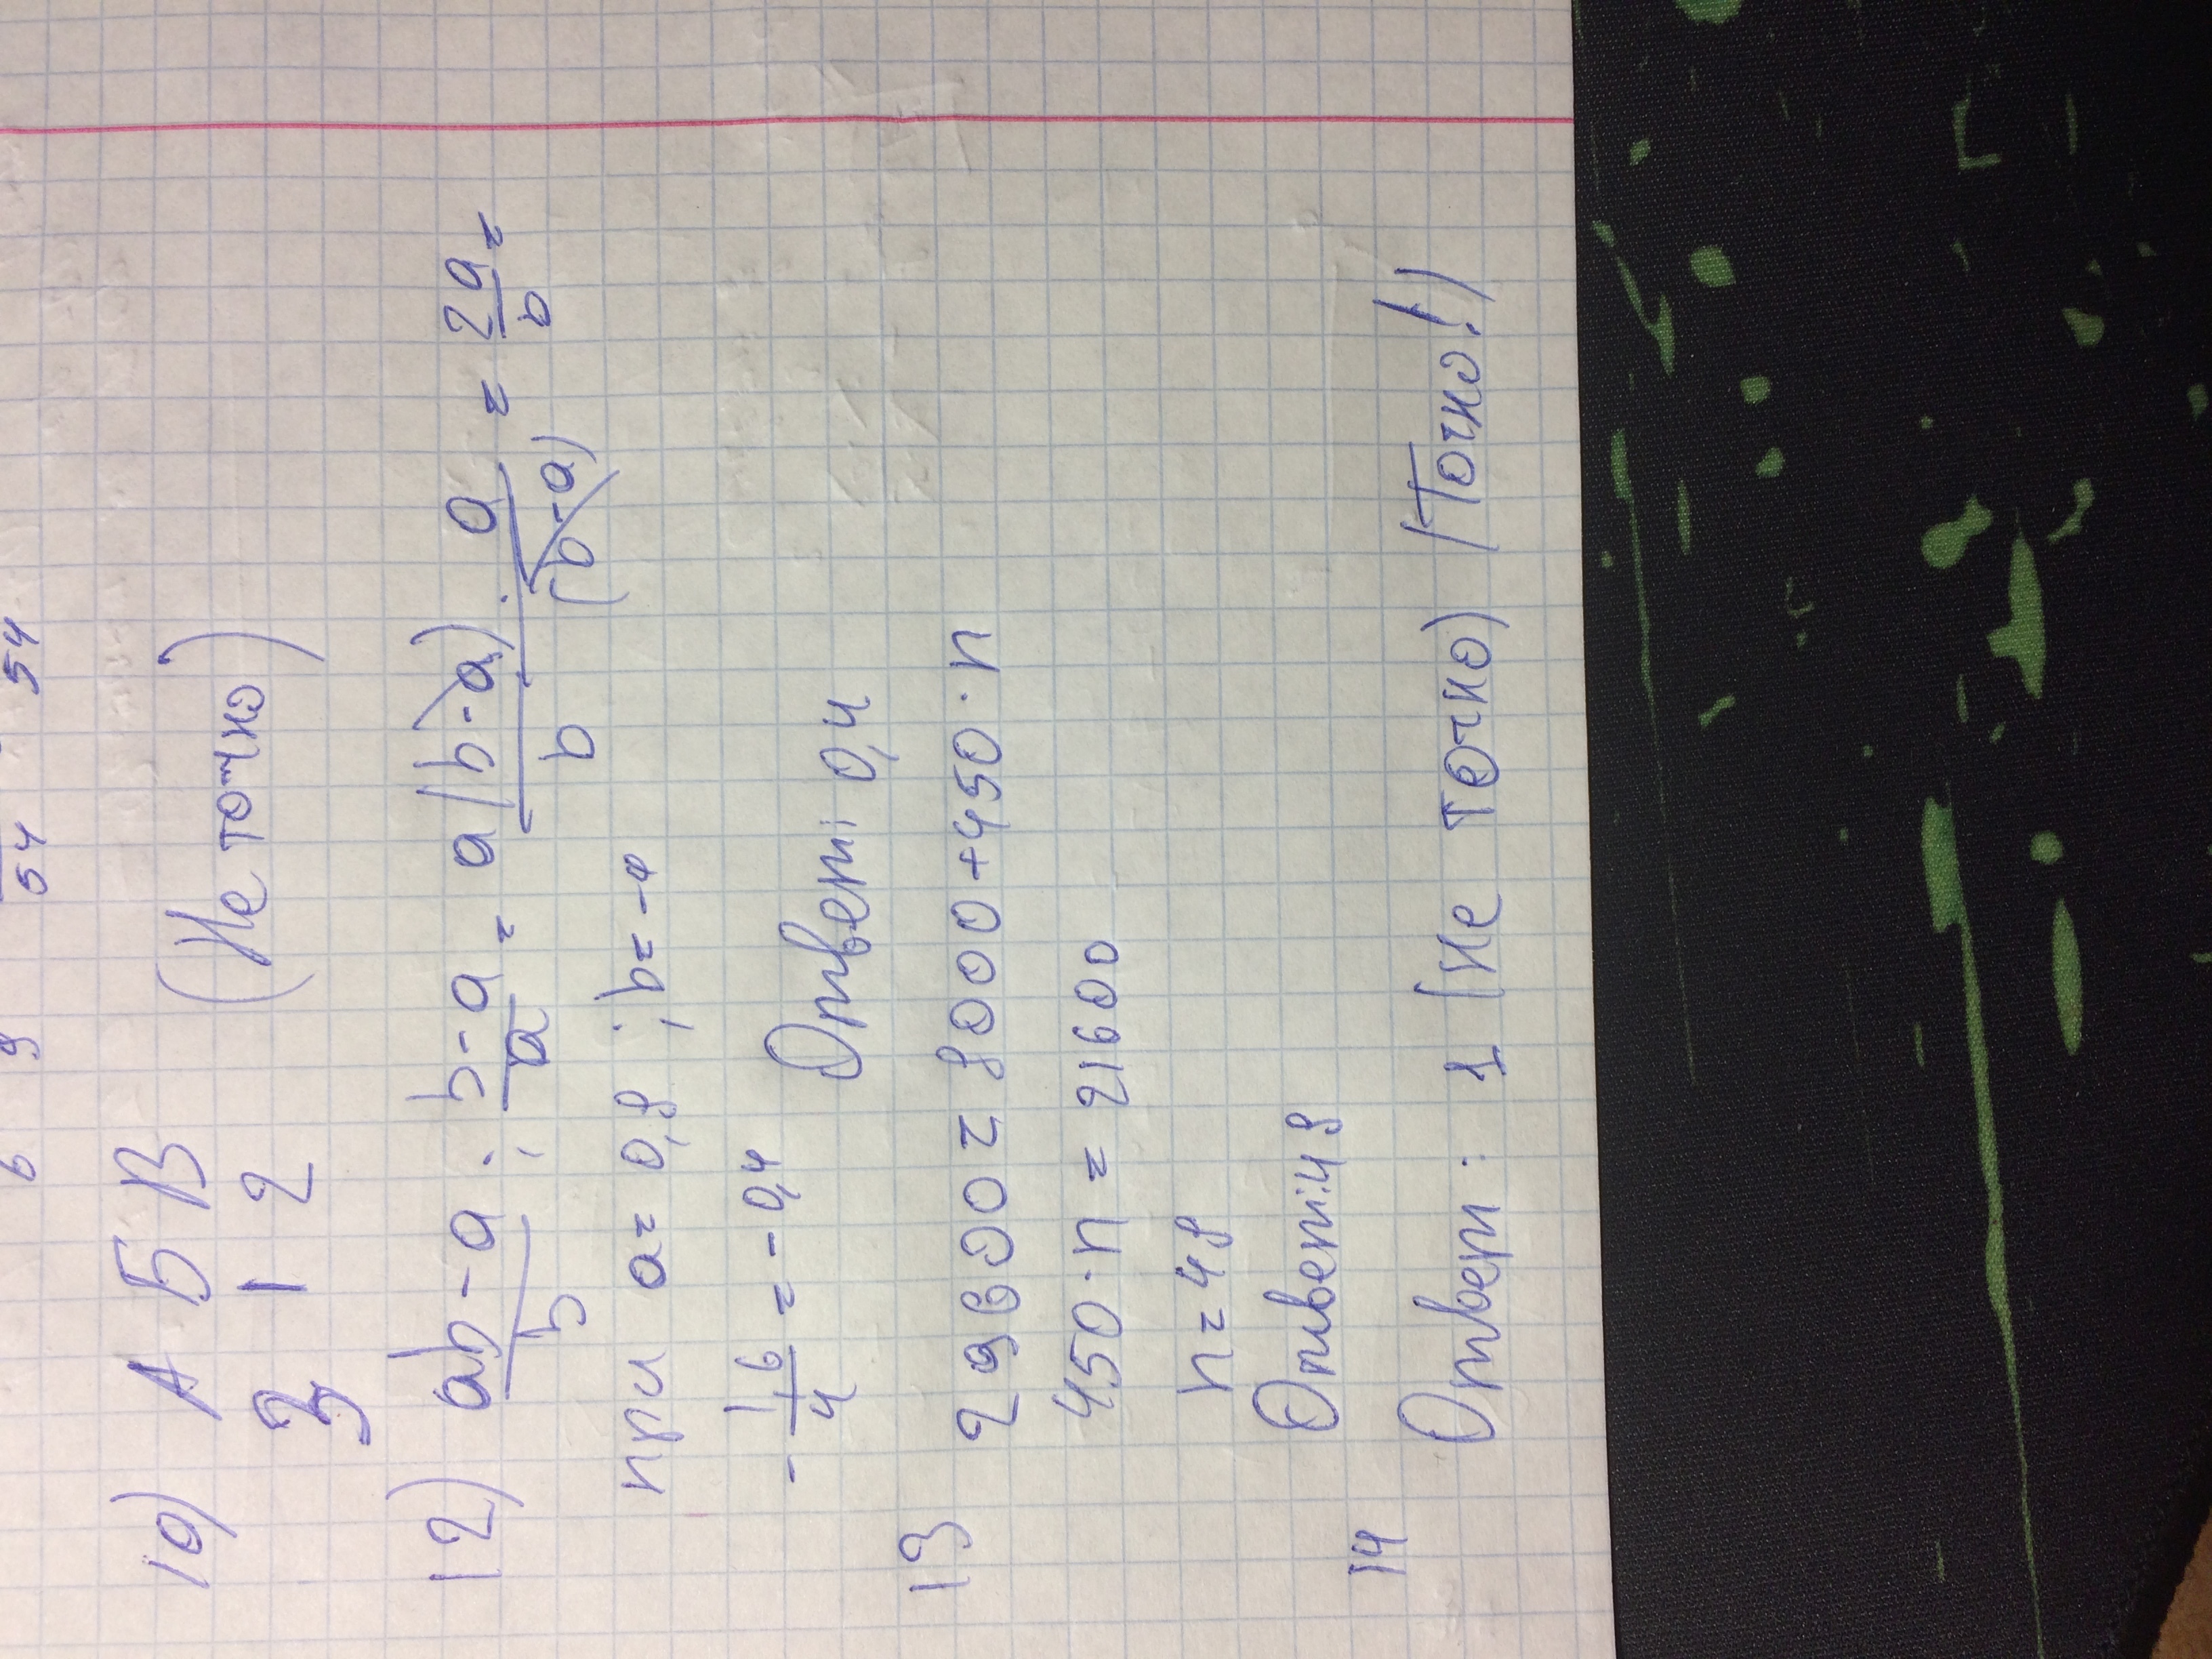 6 9 54 54
10) А Б В
3 1 2 (Не точно)
12) ab-a/b : b-a/a = a(b-a)·a/b(b-a) = 2a/b =
при a=0,8 ; b=-4
-16/4 = -0,4 Ответ: 0,4
13 29600=8000+450·n
450·n = 21600
n=48
Ответ:48
14 Ответ: 1 (Не точно) (Точно!)